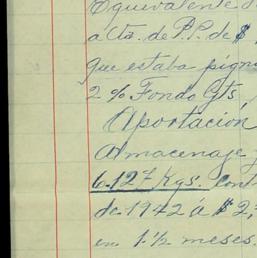 Equivalente
a cta. de P.P. de $
que estaba pigno
2 % Fondo Gts,
Aportación
Almacenaje
6.127 Kgs. Cont
de 1942 á $2,
en 1 1/2 meses.